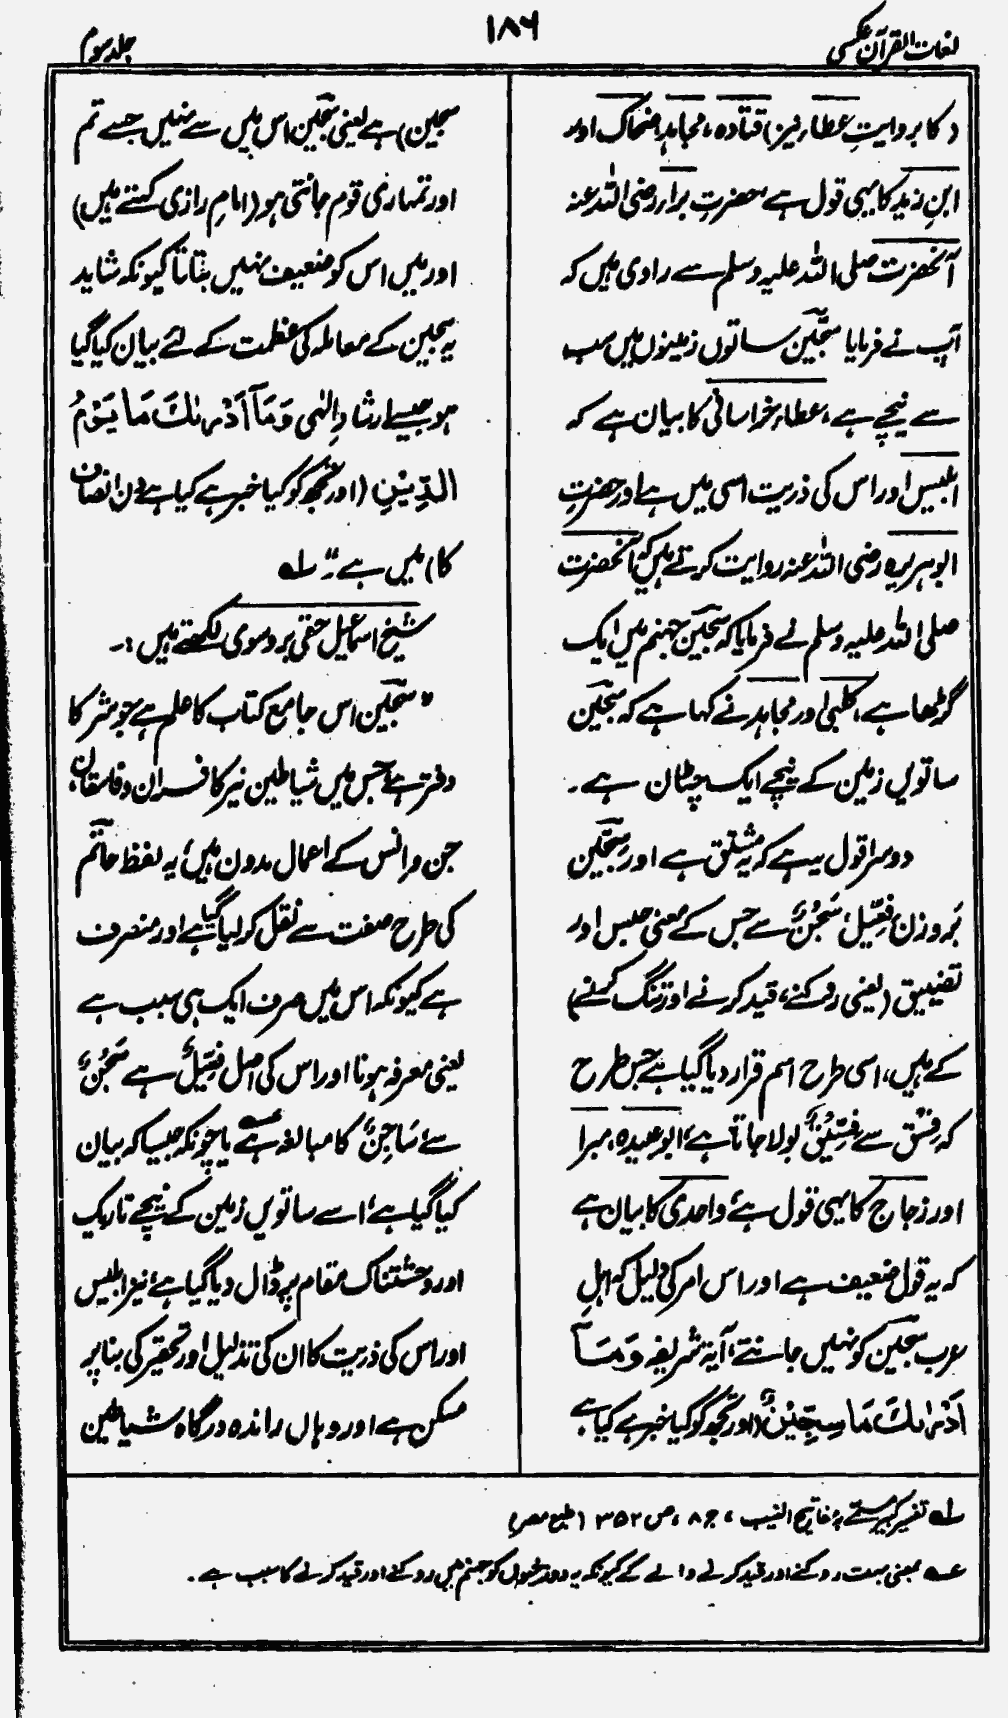 لغات القرآن عکسی
۱۸۶
جلد سوم
(کا بروایتِ عطار نیز) قتادہ، مجاہد، ضحاک اور
ابنِ زید کا یہی قول ہے حضرتِ برار رضی اللہ عنہ
آنحضرت صلی اللہ علیہ وسلم سے راوی ہیں کہ
آپ نے فرمایا سِجِّین ساتوں زمینوں میں سب
سے نیچے ہے، عطاء خراسانی کا بیان ہے کہ
ابلیس اور اس کی ذریت اسی میں ہے اور حضرتِ
ابوہریرہ رضی اللہ عنہ روایت کرتے ہیں کہ آنحضرت
صلی اللہ علیہ وسلم نے فرمایا کہ سجّین جہنم میں ایک
گڑھا ہے، کلبی اور مجاہد نے کہا ہے کہ سجّین
ساتویں زمین کے نیچے ایک چٹان ہے۔
دوسرا قول یہ ہے کہ یہ مشتق ہے اور سِجّین
بَروزن فِعِّیل، سَجْنٌ سے جس کے معنی حبس اور
تضییق (یعنی روکنے، قید کرنے اور تنگ کرنے)
کے ہیں، اسی طرح اسم قرار دیا گیا ہے جس طرح
کہ فِسْق سے فِسِّیْقٌ بولا جاتا ہے، ابوعبیدہ، مبرا
اور زجاج کا یہی قول ہے، واحدی کا بیان ہے
کہ یہ قول ضعیف ہے اور اس امر کی دلیل کہ اہلِ
عرب سجّین کو نہیں جانتے، آیۃ شریفہ وَمَآ
اَدْرٰىكَ مَا سِجِّيْنٌ (اور تجھ کو کیا خبر ہے کیا ہے
سجین) ہے یعنی سجّین اس میں سے نہیں جسے تم
اور تمہاری قوم جانتی ہو (امام رازی کہتے ہیں)
اور میں اس کو ضعیف نہیں بتاتا کیونکہ شاید
یہ سجین کے معاملہ کی عظمت کے لئے بیان کیا گیا
ہو جیسے ارشادِ الٰہی وَمَآ اَدْرٰىكَ مَا يَوْمُ
الدِّيْنِ (اور تجھ کو کیا خبر ہے کیا ہے دن انصاف
کا) میں ہے۔" لہ
شیخ اسماعیل حقی بروسوی لکھتے ہیں:۔
"سجّین اس جامع کتاب کا علم ہے جو شر کا
دفتر ہے جس میں شیاطین نیز کافران و فاسقان،
جن و انس کے اعمال مدون ہیں، یہ لفظ حاتَّم
کی طرح صفت سے نقل کر لیا گیا ہے اور منصرف
ہے کیونکہ اس میں صرف ایک ہی سبب ہے
یعنی معرفہ ہونا اور اس کی اصل فِعِّیلٌ ہے سَجْنٌ
سے سَاجِنٌ کا مبالغہ ہے عہ یا چونکہ جیسا کہ بیان
کیا گیا ہے، اسے ساتویں زمین کے نیچے تاریک
اور وحشتناک مقام پر ڈال دیا گیا ہے، نیز ابلیس
اور اس کی ذریت کا ان کی تذلیل اور تحقیر کی بنا پر
مسکن ہے اور وہاں راندہ درگاہ شیاطین
لہ تفسیر کبیر مستے بہ مفاتیح الغیب، ج ۸، ص ۳۵۲ (طبع مصر)
عہ بمعنی بہت روکنے اور قید کرنے والے کے کیونکہ یہ دوزخیوں کو جہنم میں روکنے اور قید کرنے کا سبب ہے۔